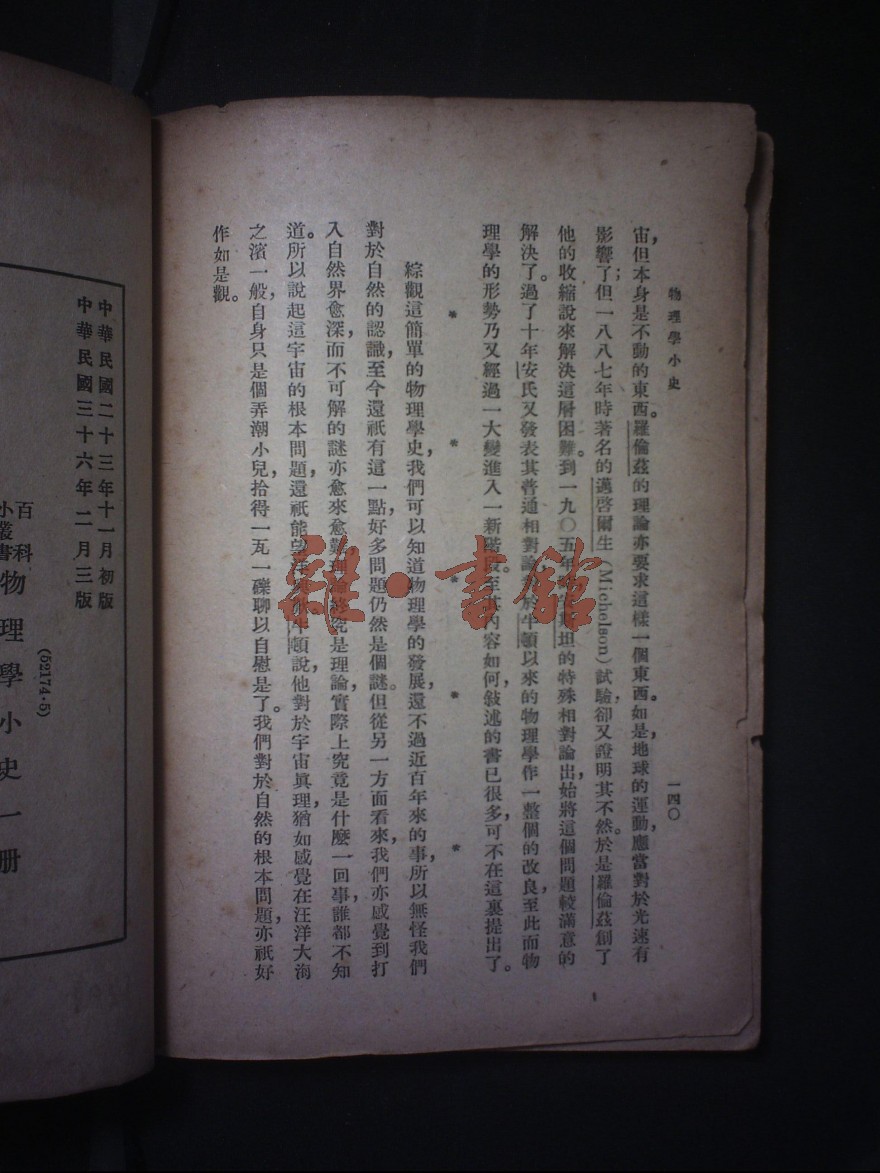 物理學小史
一四〇
宙，但本身是不動的東西。羅倫茲的理論亦要求這樣一個東西。如是，地球的運動，應當對於光速有
影響了；但一八八七年時著名的邁啓爾生（Michelson）試驗卻又證明其不然。於是羅倫茲創了
他的收縮說來解決這層困難。到一九〇五年 坦的特殊相對論出，始將這個問題較滿意的
解決了。過了十年安氏又發表其普通相對論， 於牛頓以來的物理學作一整個的改良，至此而物
理學的形勢乃又經過一大變，進入一新階段。至其內容如何，敍述的書已很多，可不在這裏提出了。
* * * * *
綜觀這簡單的物理學史，我們可以知道物理學的發展，還不過近百年來的事，所以無怪我們
對於自然的認識，至今還祇有這一點，好多問題仍然是個謎。但從另一方面看來，我們亦感覺到打
入自然界愈深，而不可解的謎亦愈來愈難，理論終究是理論，實際上究竟是什麼一回事，誰都不知
道。所以說起這宇宙的根本問題，還祇能望 牛頓說，他對於宇宙眞理，猶如感覺在汪洋大海
之濱一般，自身只是個弄潮小兒，拾得一瓦一礫聊以自慰是了。我們對於自然的根本問題，亦祇好
作如是觀。
雜·書館
中華民國二十三年十一月初版
中華民國三十六年二月三版
(52174·5)
百科小叢書 物理學小史一册